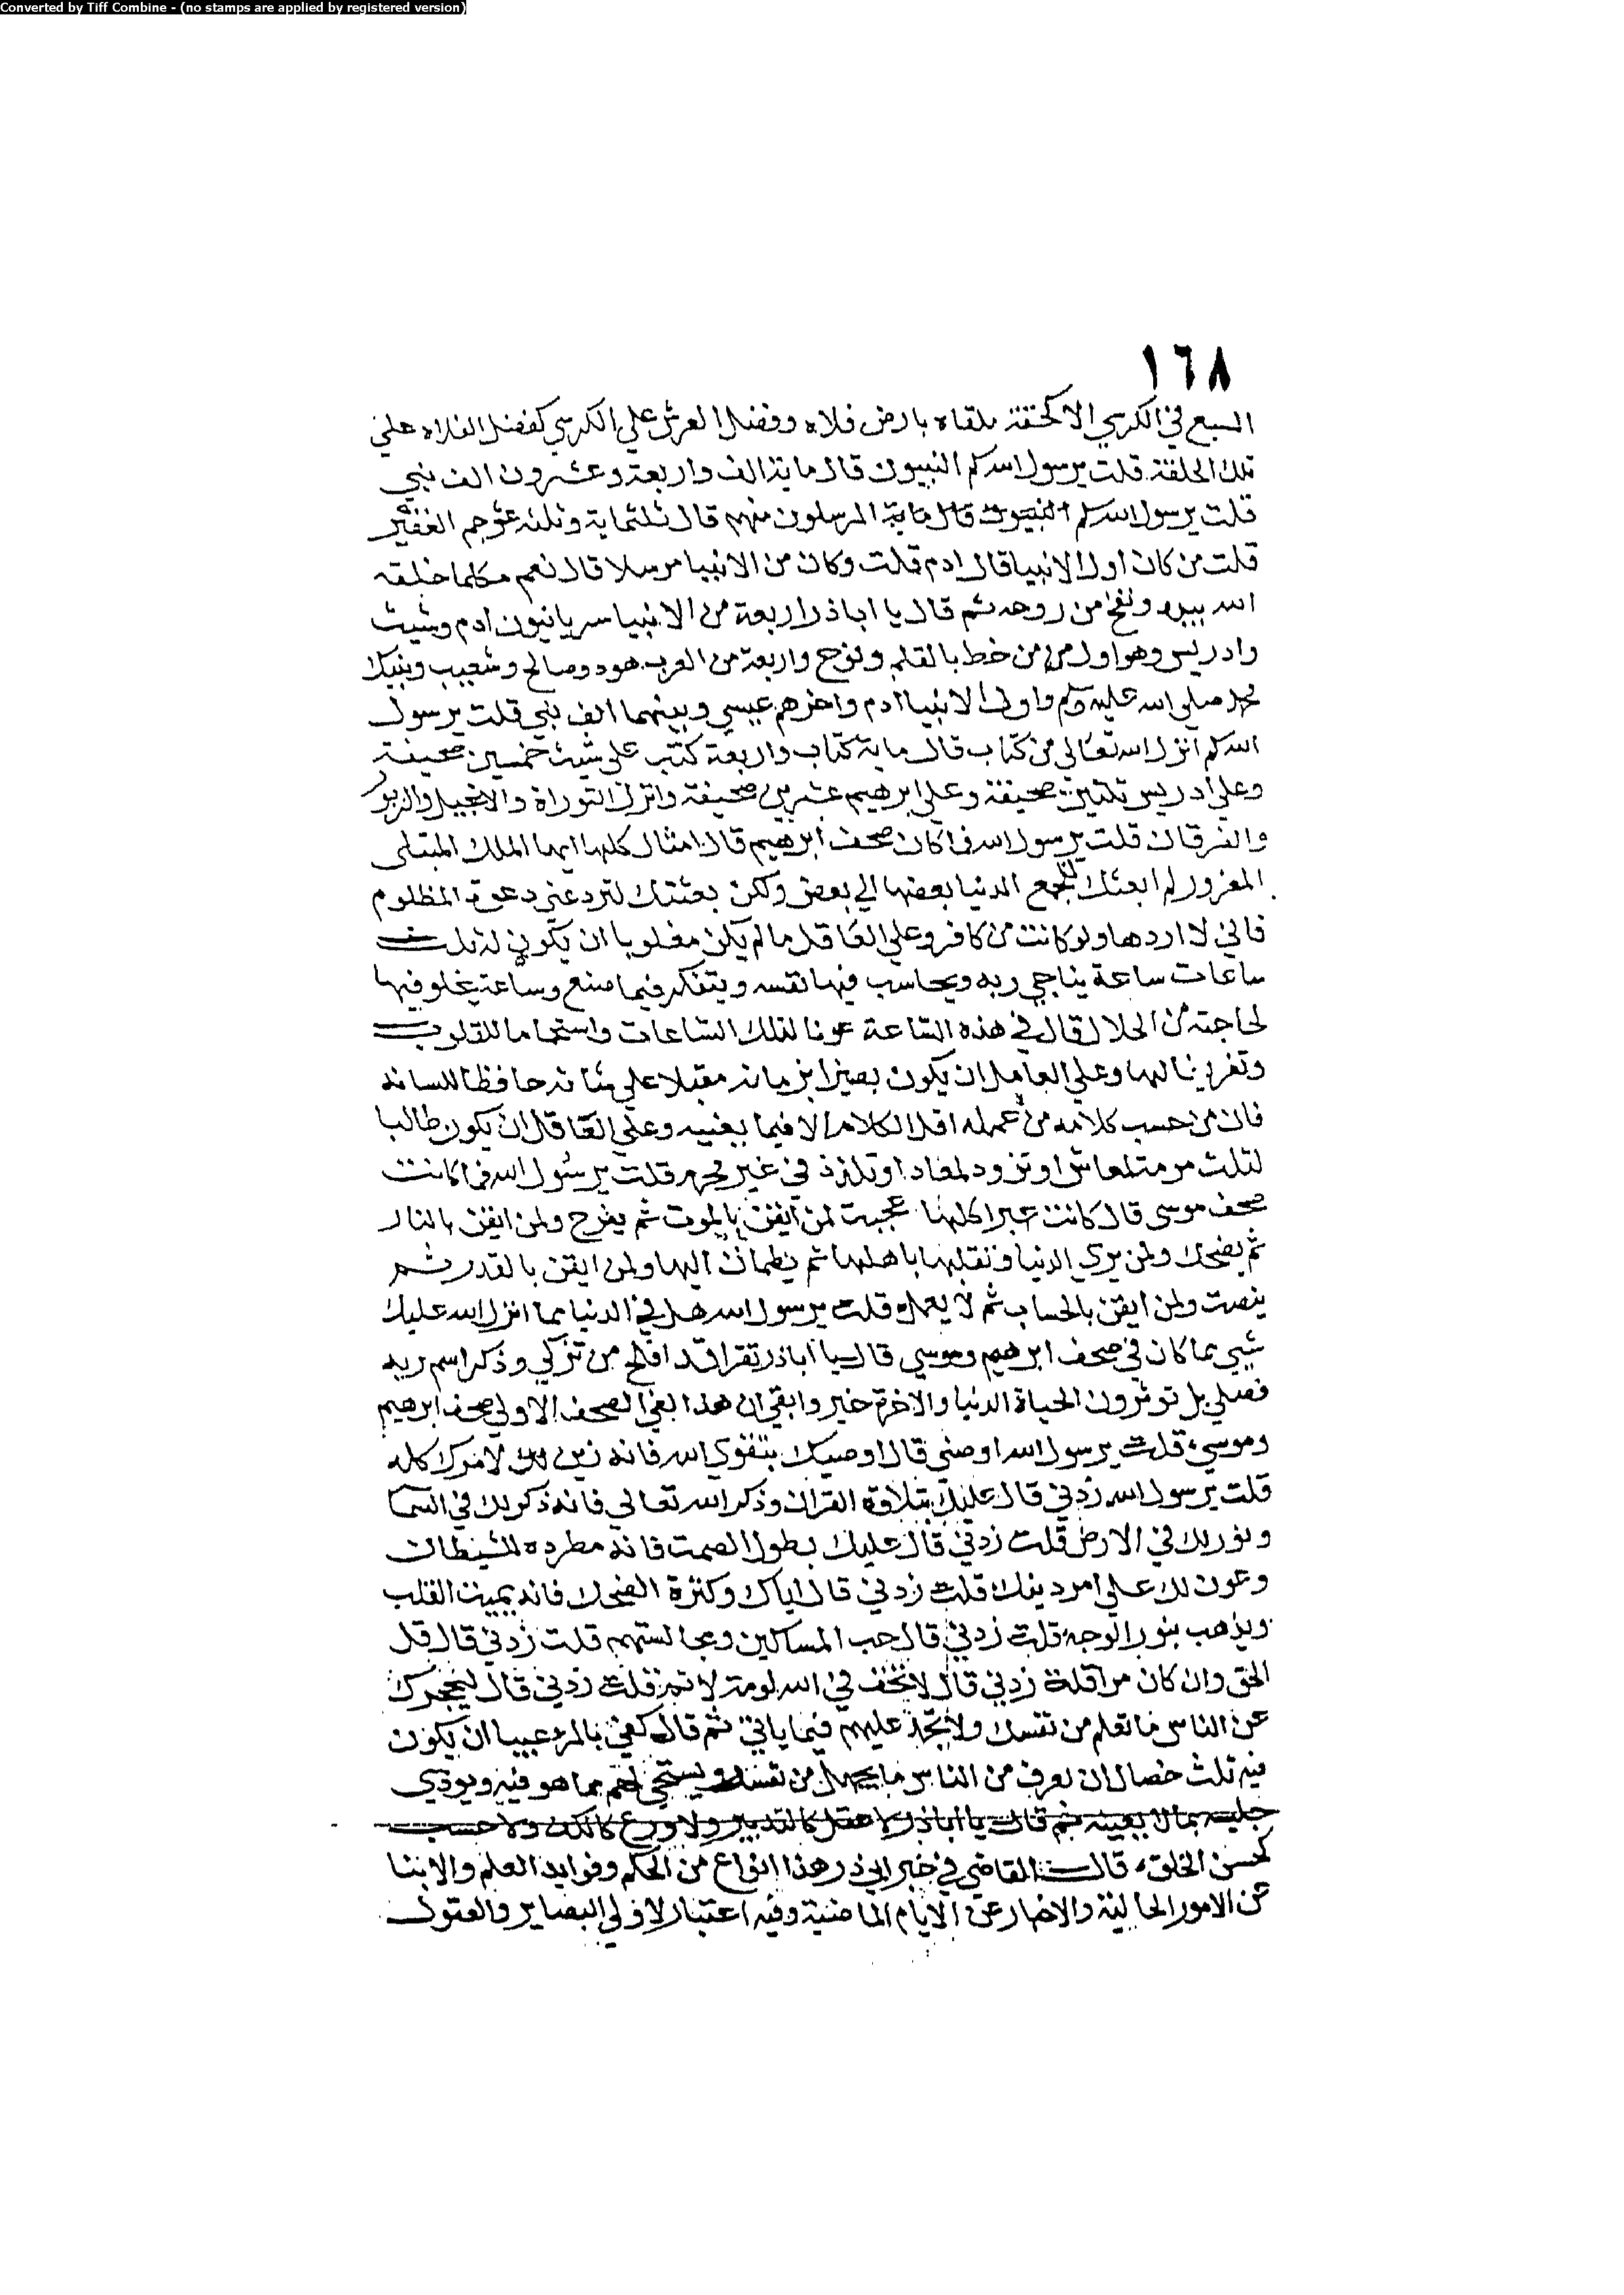 Converted by Tiff Combine - (no stamps are applied by registered version)
١٦٨
السبع في الكرسي الا كحلقة ملقاه بارض فلاه وفضل العرش علي الكرسي كفضل الفلاه علي
تلك الحلقة قلت يرسول الله كم النبيون قال ماية الف واربعة وعشرون الف نبي
قلت يرسول الله كم المرسلون منهم قال ثلثماية وثلثه عشر جم الغفير
قلت من كان اول الانبيا قال ادم قلت وكان من الانبيا مرسلا قال نعم مكلما خلقه
الله بيده ونفخ من روحه ثم قال يا اباذر اربعة من الانبيا سريانيون ادم وشيث
وادريس وهو اول من خط بالقلم ونوح واربعة من العرب هود وصالح وشعيب ونبيك
محمد صلي الله عليه وسلم واول الانبيا ادم واخرهم عيسي وبينهما الف نبي قلت يرسول
الله كم انزل الله تعالي من كتاب قال ماية كتاب واربعة كتب علي شيث خمسين صحيفة
وعلي ادريس ثلثين صحيفة وعلي ابرهيم عشرين صحيفة وانزل التوراة والانجيل والزبور
والفرقان قلت يرسول الله فما كان صحف ابرهيم قال امثال كلها ايها الملك المبتلي
المغرور لم ابعثك لتجمع الدنيا بعضها الي بعض ولكن بعثتك لترد عني دعوة المظلوم
فاني لا اردها ولو كانت من كافر وعلي العاقل ما لم يكن مغلوبا ان يكون له ثلث
ساعات ساعة يناجي ربه ويحاسب فيها نفسه ويتفكر فيما صنع وساعة يخلو فيها
لحاجته من الحلال قال في هذه الساعة عونا لتلك الساعات واستجماما للقلوب
وتفريغا لها وعلي العاقل ان يكون بصيرا بزمانه مقبلا علي شانه حافظا للسانه
فان من حسب كلامه من عمله اقل الكلام الا فيما يعنيه وعلي العاقل ان يكون طالبا
لثلث مرمة لمعاش او تزود لمعاد او تلذذ في غير محرم قلت يرسول الله فما كانت
صحف موسى قال كانت عبرا كلها عجبت لمن ايقن بالموت ثم يفرح ولمن ايقن بالنار
ثم يضحك ولمن يري الدنيا وتقلبها باهلها ثم يطمان اليها ولمن ايقن بالقدر ثم
ينصت ولمن ايقن بالحساب ثم لا يعمل قلت يرسول الله هل في الدنيا مما انزل الله عليك
شي مما كان في صحف ابرهيم وموسي قال يا اباذر تقرا قد افلح من تزكي وذكر اسم ربه
فصلي بل توثرون الحياة الدنيا والاخرة خير وابقي ان هذا لفي الصحف الاولي صحف ابرهيم
وموسي قلت يرسول الله اوصني قال اوصيك بتقوي الله فانه زين لامرك كله
قلت يرسول الله زدني قال عليك بتلاوة القران وذكر الله تعالي فانه ذكر لك في السما
ونور لك في الارض قلت زدني قال عليك بطول الصمت فانه مطرده للشيطان
وعون لك علي امر دينك قلت زدني قال اياك وكثرة الضحك فانه يميت القلب
ويذهب بنور الوجه قلت زدني قال حب المساكين ومجالستهم قلت زدني قال قل
الحق وان كان مرا قلت زدني قال لا تخف في الله لومة لائم قلت زدني قال ليحجزك
عن الناس ما تعلم من نفسك ولا تجد عليهم فيما ياتي ثم قال كفي بالمر عيبا ان يكون
فيه ثلث خصال ان يعرف من الناس ما يجهل من نفسه ويستحي لهم مما هو فيه ويوذي
جليسه بما لا يعينه ثم قال يا اباذر لا عقل كالتدبير ولا ورع كالكف ولا حسب
كحسن الخلق قال القاضي في خبر ابي ذر هذا انواع من الحكم وفوايد العلم والانبا
عن الامور الخالية والاخبار عن الايام الماضية وفيه اعتبار لاولي البصاير والعقول